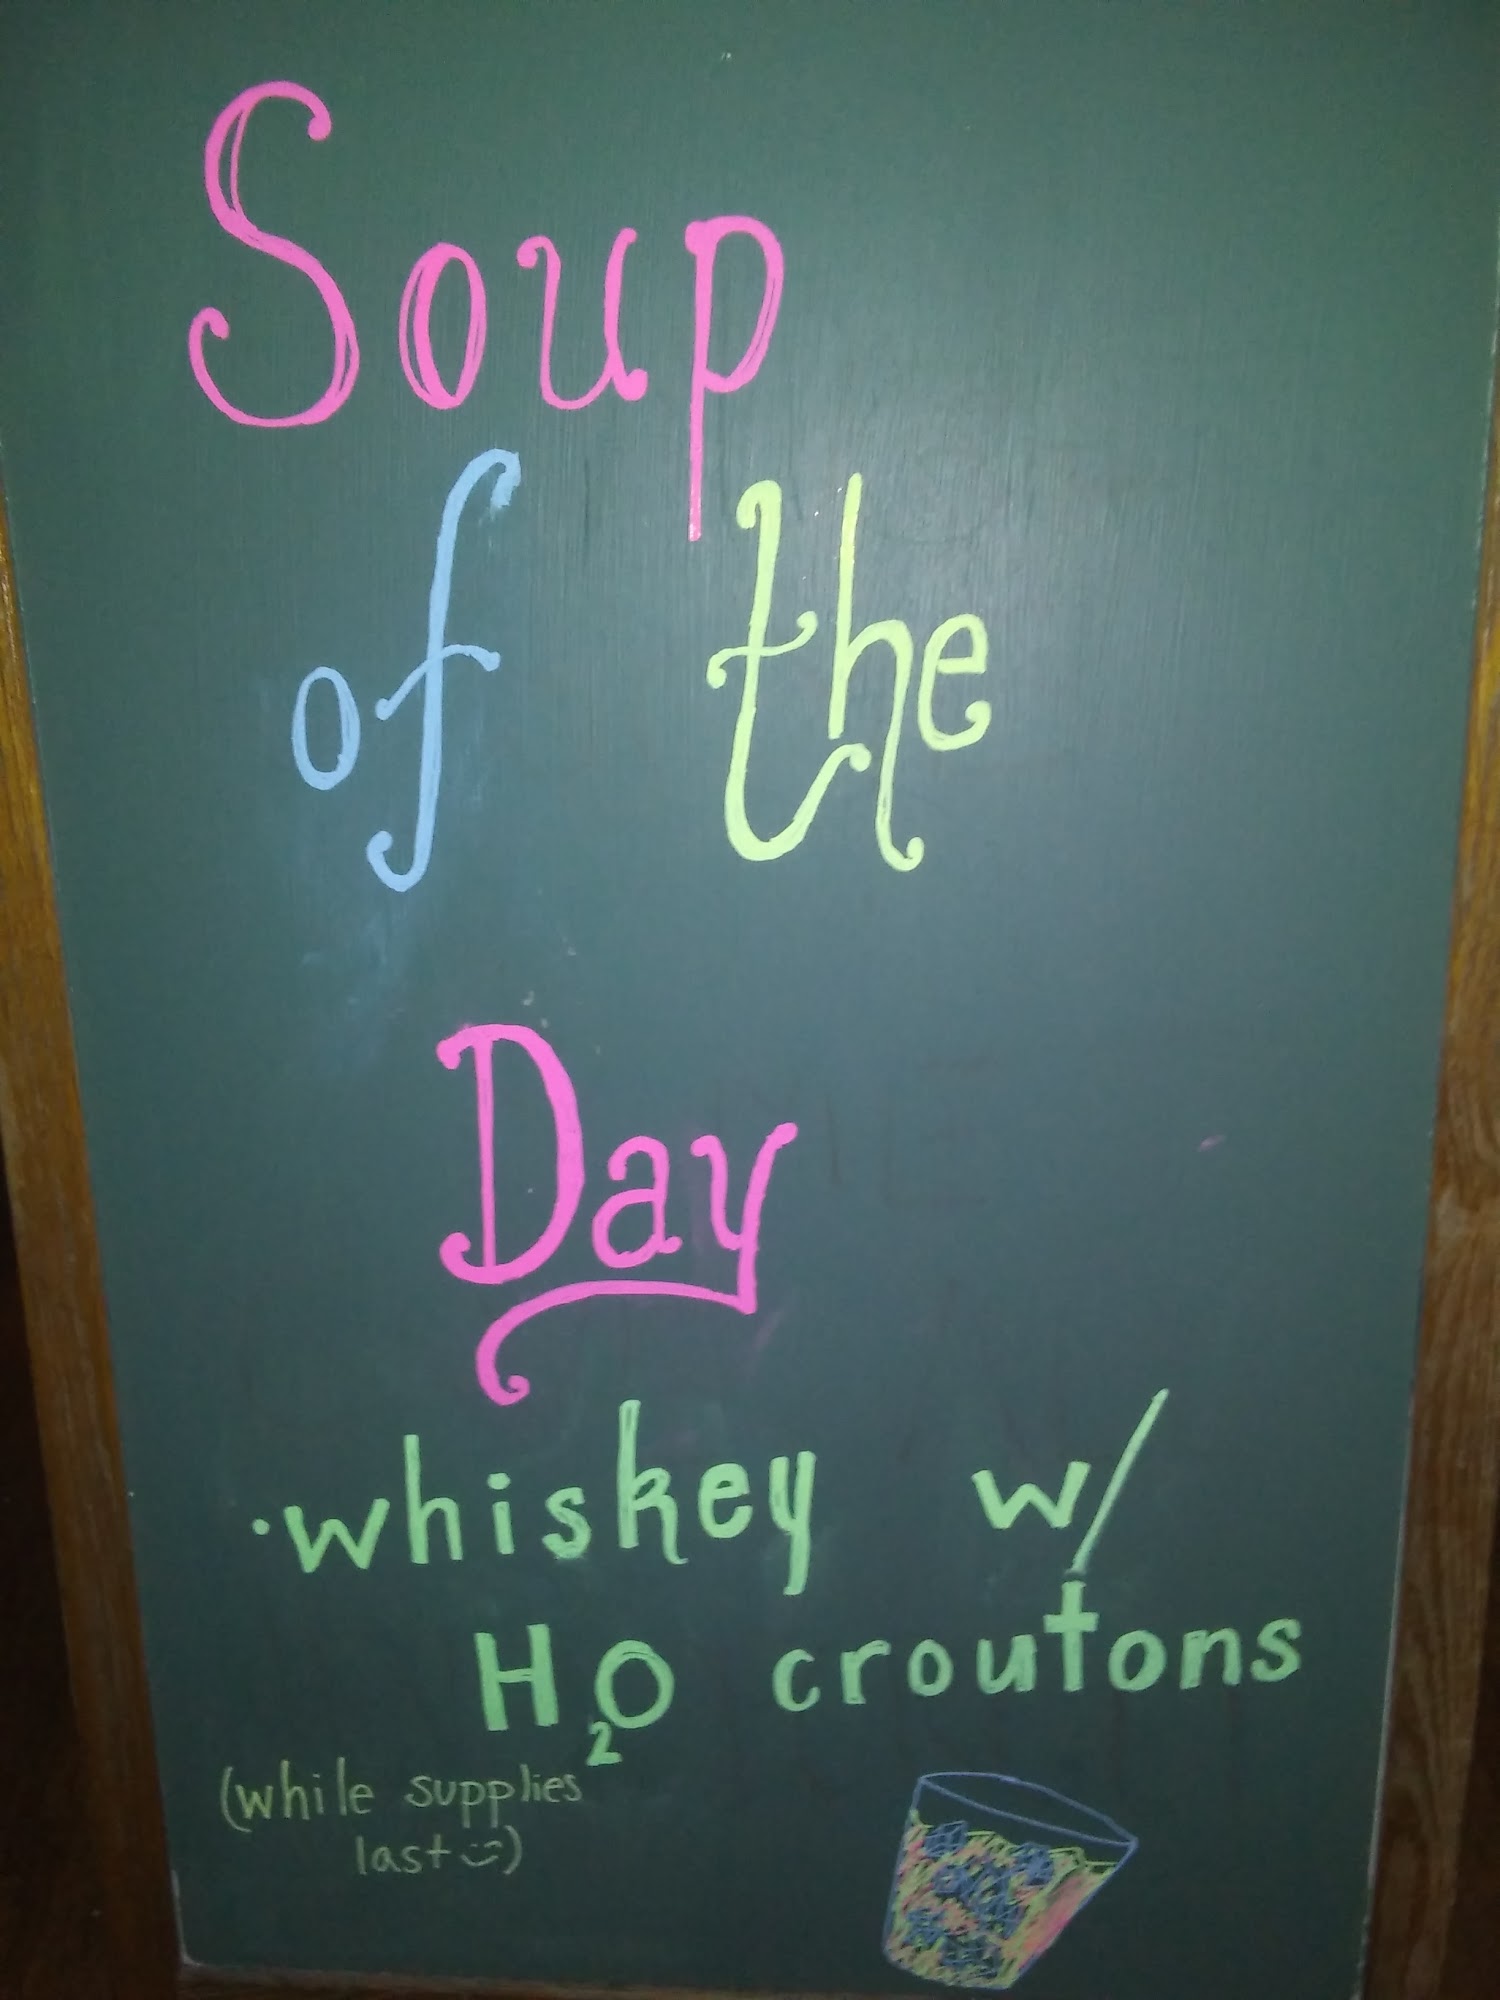 Soup
of the
Day
·whiskey w/
H₂O croutons
(while supplies
last :))